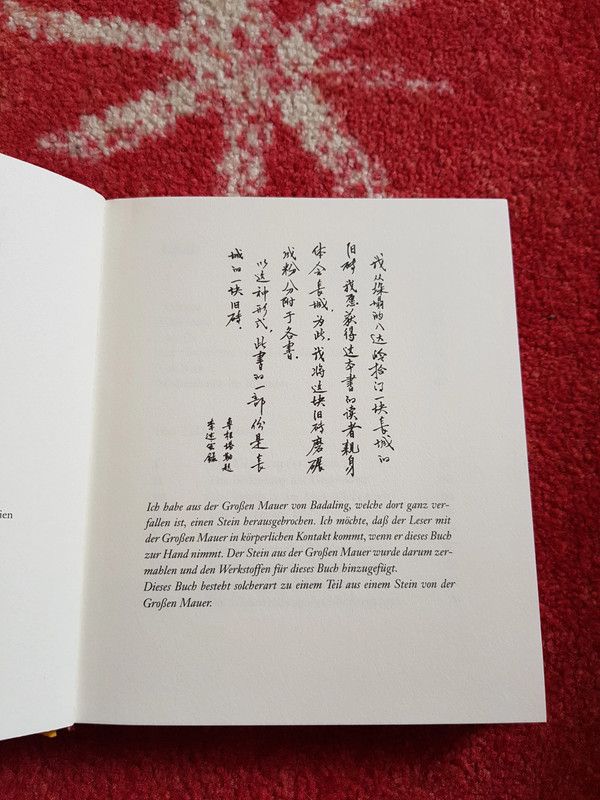 ien
我从塌的八达岭拾了一块长城的
旧砖.我愿获得这本书的读者亲身
体会长城.为此,我将这块旧砖磨碾
成粉分附于各书.
以这种形式,此书的一部份是长
城的一块旧砖.
Ich habe aus der Großen Mauer von Badaling, welche dort ganz ver-
fallen ist, einen Stein herausgebrochen. Ich möchte, daß der Leser mit
der Großen Mauer in körperlichen Kontakt kommt, wenn er dieses Buch
zur Hand nimmt. Der Stein aus der Großen Mauer wurde darum zer-
mahlen und den Werkstoffen für dieses Buch hinzugefügt.
Dieses Buch besteht solcherart zu einem Teil aus einem Stein von der
Großen Mauer.